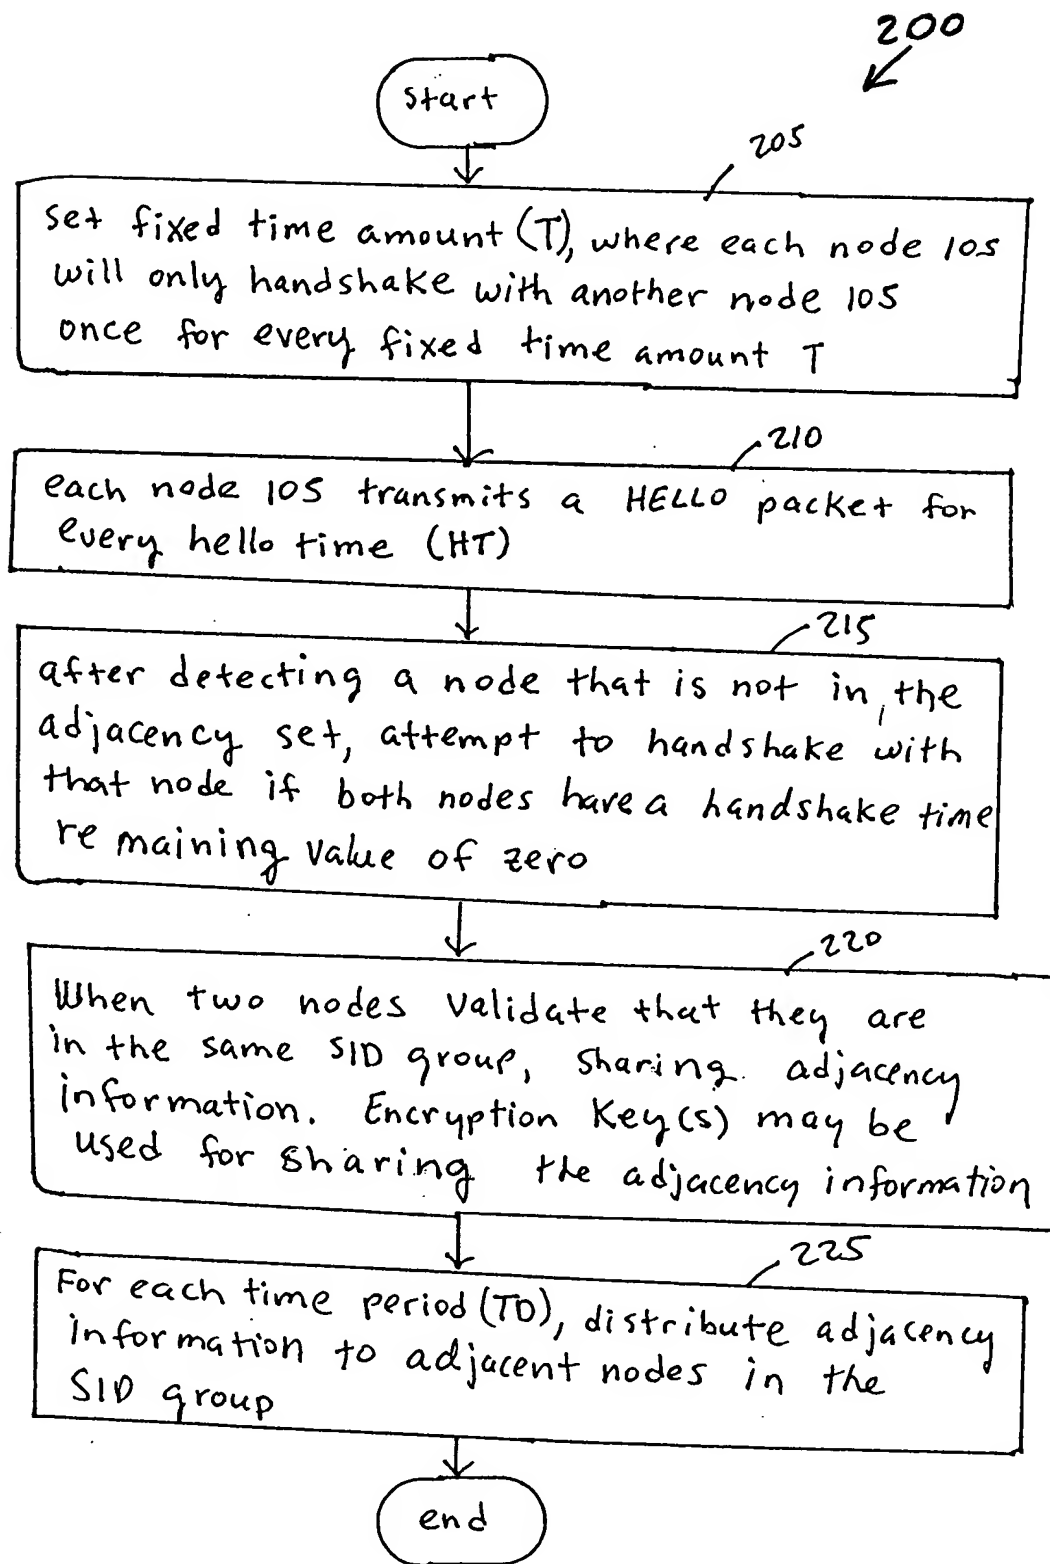 200
start
205
set fixed time amount (T), where each node 105
will only handshake with another node 105
once for every fixed time amount T
210
each node 105 transmits a HELLO packet for
every hello time (HT)
215
after detecting a node that is not in the
adjacency set, attempt to handshake with
that node if both nodes have a handshake time
remaining value of zero
220
When two nodes validate that they are
in the same SID group, sharing adjacency
information. Encryption Key(s) may be
used for sharing the adjacency information
225
For each time period (TD), distribute adjacency
information to adjacent nodes in the
SID group
end